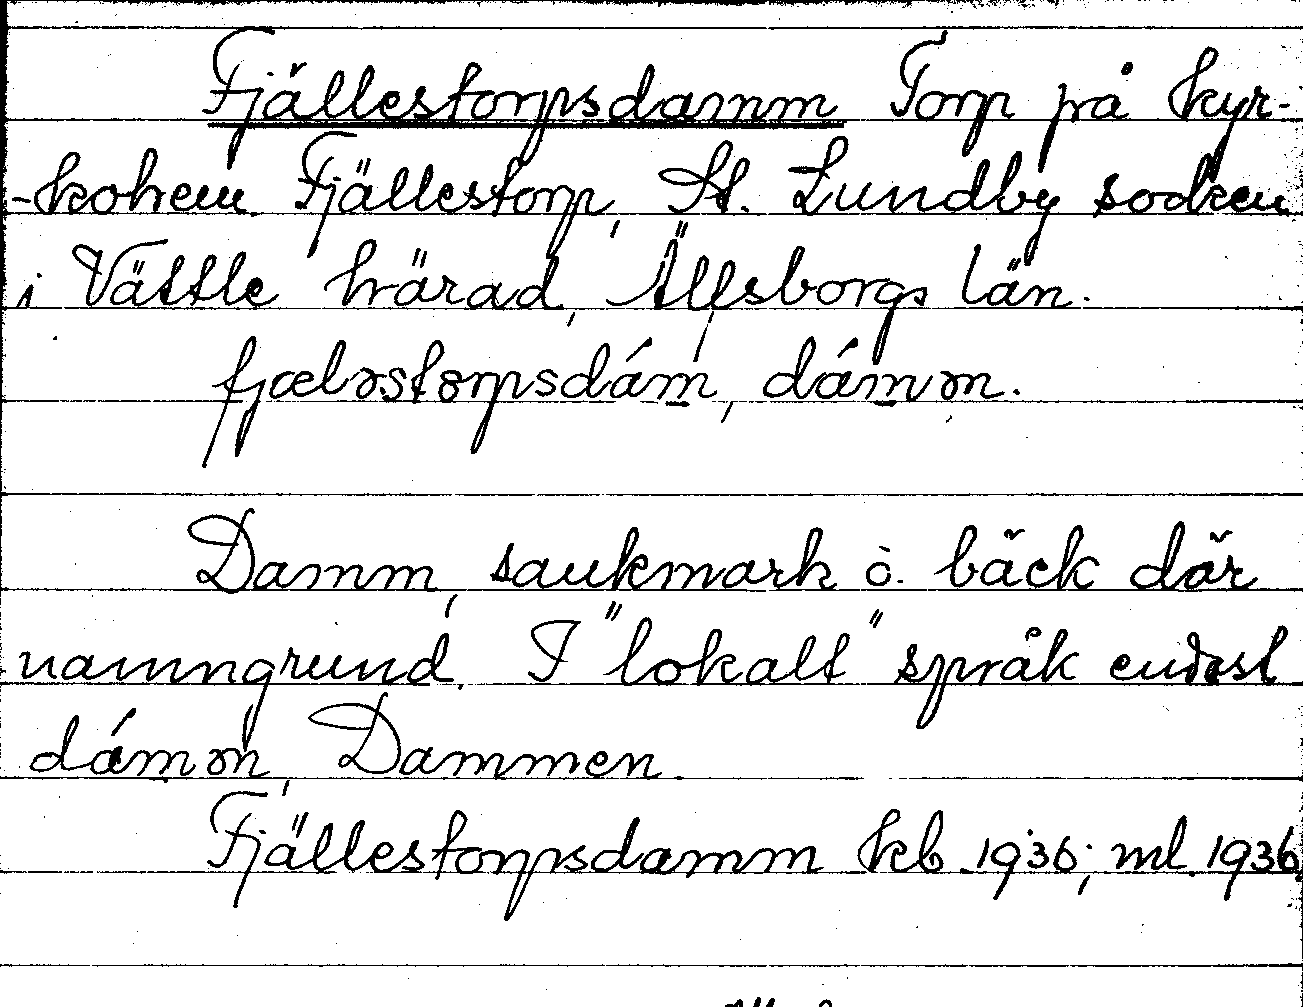 Fjällestorpsdamm Torp på kyr-
-kohem. Fjällestorp, St. Lundby socken
i Vättle härad, Älfsborgs län.
fjæləstɔrpsdám, dámən.
Damm, sankmark o. bäck där
namngrund. I "lokalt" språk endast
dámən, Dammen.
Fjällestorpsdamm kb. 1936; ml. 1936.